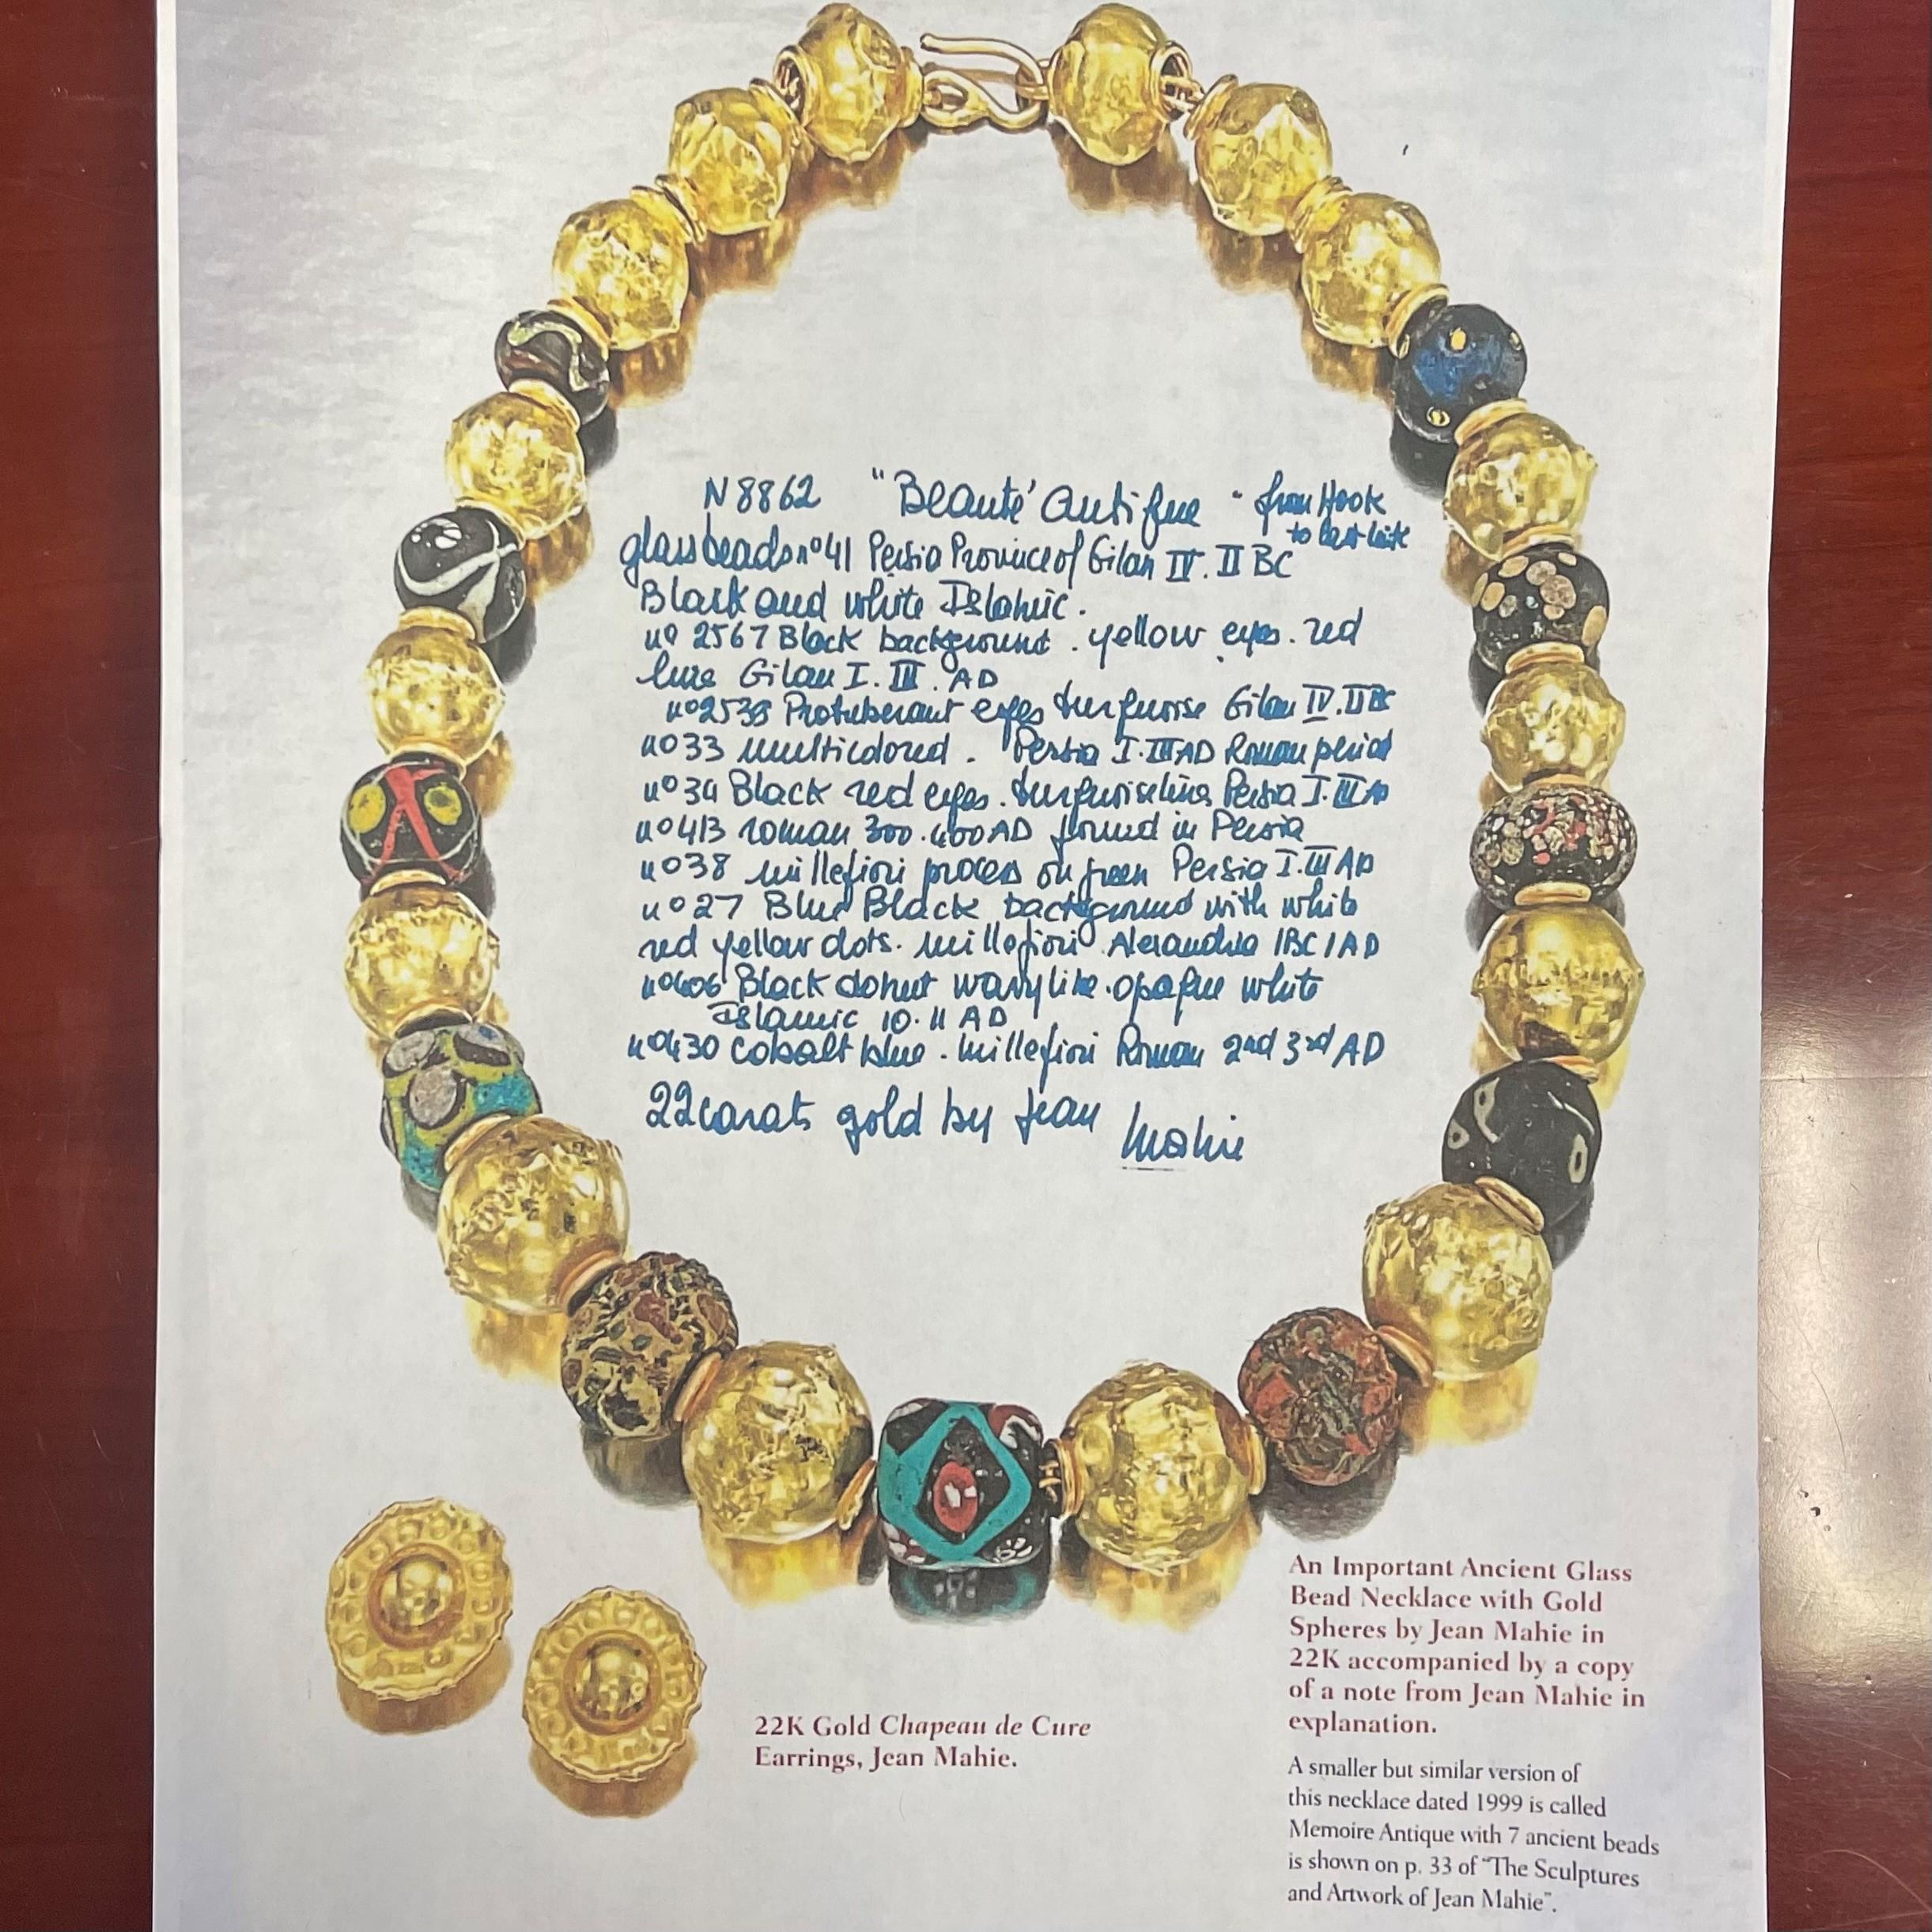 N 8862 "Beauté Antique" from Hook
to last link
glass beads nº 41 Persia Province of Gilan IV. II BC
Black and white Islamic.
nº 2567 Black background. yellow eyes. red
line Gilan I. III. AD
Protuberant eyes turquoise Gilan IV. II BC
nº 33 multicolored. Persia I. III AD Roman period
nº 34 Black red eyes. turquoise lines Persia I. III AD
nº 413 roman 300.400 AD found in Persia
nº 38 millefiori process on green Persia I. III AD
nº 27 Blue Black background with white
red yellow dots. millefiori Alexandria 1BC 1AD
nº 606 Black donut wavy line. opaque white
Islamic 10. 11 AD
nº 430 cobalt blue. millefiori Roman 2nd 3rd AD
22 carats gold by Jean Mahie
22K Gold Chapeau de Cure
Earrings, Jean Mahie.
An Important Ancient Glass
Bead Necklace with Gold
Spheres by Jean Mahie in
22K accompanied by a copy
of a note from Jean Mahie in
explanation.
A smaller but similar version of
this necklace dated 1999 is called
Memoire Antique with 7 ancient beads
is shown on p. 33 of "The Sculptures
and Artwork of Jean Mahie".